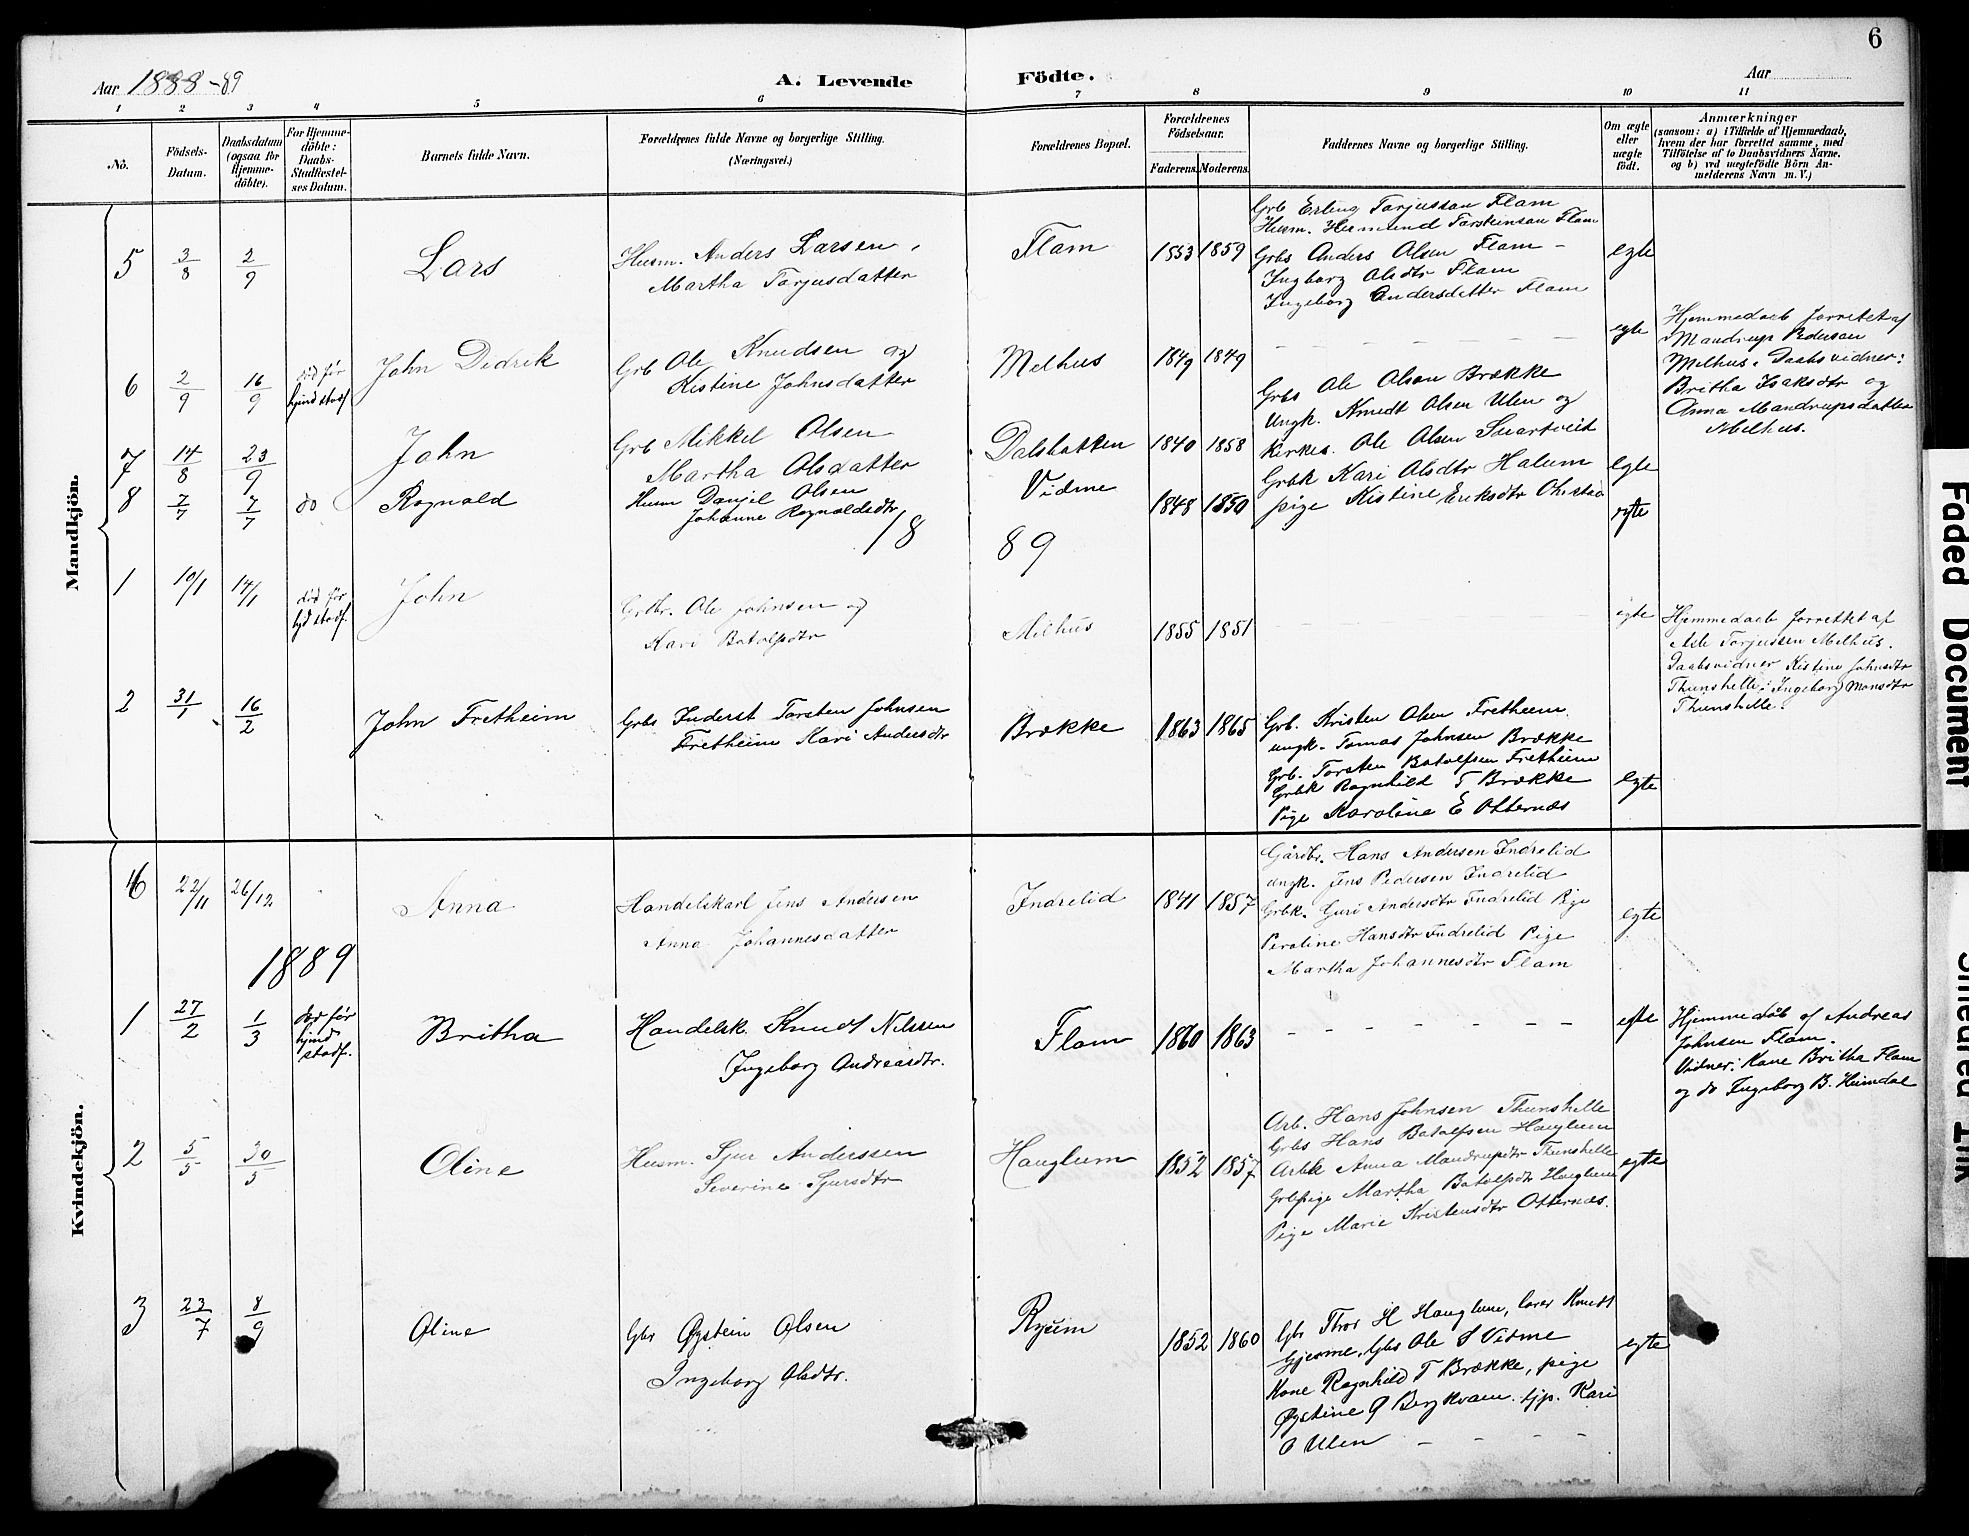 6
Aar 1888-89
A. Levende Födte.
Aar
1 2 3 4 5 6 7 8 9 10 11
No.
Födsels-Datum.
Daabsdatum (ogsaa for Hjemme-döbte).
For Hjemme-döbte: Daabs-Stadfæstel-ses Datum.
Barnets fulde Navn.
Forældrenes fulde Navne og borgerlige Stilling. (Næringsvei.)
Forældrenes Bopæl.
Forældrenes Födselsaar.
Faderens. Moderens.
Faddernes Navne og borgerlige Stilling.
Om ægte eller uægte födt.
Anmærkninger
(saasom: a) i Tilfælde af Hjemmedaab, hvem der har forrettet samme, med Tilföielse af to Daabsvidners Navne, og b) ved uægtefödte Börn An-melderens Navn m. V.)
Mandkjön.
5 3/8 2/9 Lars
Husm. Anders Larsen,
Martha Torjusdatter
Flam 1853 1859
Grb Erling Torjussen Flam
Husm. Hermund Torsteinsen Flam
Grbs Anders Olsen Flam -
Ingborg Olsdtr Flam
Ingeborg Andersdatter Flam
egte
6 2/9 16/9 død før hjind stadf.
John Didrik
Grb Ole Knudsen og
Kistine Johnsdatter
Melhus 1849 1849
- - - - - - -
egte
Hjemmedaab forrettet af
Mandrup Pedersen
Melhus. Daabsvidner:
Britha Isaksdtr og
Anna Mandrupsdatter
Melhus.
7 14/8 23/9 John
Grb Mikkel Olsen
Martha Olsdatter
Dalsbotten 1840 1858
Grbs Ole Olsen Brække
Ungk. Knudt Olsen Ulen og
Kirkes. Ole Olsen Svartveit
Grbk Kari Olsdtr Halum
pige Kistine Eriksdtr
egte
8 7/7 7/7 do Rognald
Husm Danjel Olsen
Johanne Rognaldsdtr
Vidme 1848 1850
egte
18 89
1 10/1 14/1 død før stadf.
John
Grbr. Ole Johnsen og
Kari Botolfsdtr
Melhus 1855 1851
egte
Hjemmedaab forrettet af
Asle Torjussen Melhus.
Daabsvidner Kistine Johnsdtr
Thunshelle: Ingeborg Monsdtr
Thunshelle.
2 31/1 16/2 John Fretheim
Grbs Inderst Torsten Johnsen
Fretheim Kari Andersdtr
Brække 1863 1865
Grb. Kristen Olsen Fretheim
ungk. Tomas Johnsen Brække
Grb. Torsten Botolfsen Fretheim
Grbk Ragnhild T Brække
Pige Karoline E Otternæs
egte
Kvindekjön.
6 22/11 26/12 Anna
Handelskarl Jens Andersen
Anna Johannesdatter
Indrelid 1841 1857
Gårdbr. Hans Andersen Indrelid
ungk. Jens Pedersen Indrelid
Grbk. Guri Andersdtr Indrelid Pige
Peroline Hansdtr Indrelid Pige
Martha Johannesdtr Flam
egte
1889
1 27/2 1/3 død før hjind stadf.
Britha
Handelsk. Knut Nilssen
Ingeborg Andreasdtr.
Flam 1860 1863
- - - - - - -
egte
Hjemmedøb af Andreas
Johnsen Flam.
Vidner: Kone Britha Flam
og do Ingeborg B. Heimdal
2 5/5 30/5 Oline
Husm. Sjur Anderssen
Severine Sjursdtr
Hauglum 1852 1857
Arb. Hans Johnsen Thunshelle
Grbs Hans Botolfsen Hauglum
Arbk Anna Mandrupsdtr Thunshelle
Grbpige Martha Botolfsdtr Hauglum
Pige Marie Kristensdtr Otternæs.
egte
3 23/7 8/9 Oline
Gbr Øystein Olsen
Ingeborg Olsdtr.
Ryum 1852 1860
Gbr Thor H Hauglum, lærer Knudt
Gjerme, Gbs Ole S Vidme
Kone Ragnhild T Brække, pige
Øystine O Berekvam. tjp. Kari
O Ulen - - - -
egte
Faded Document
Smeared Ink